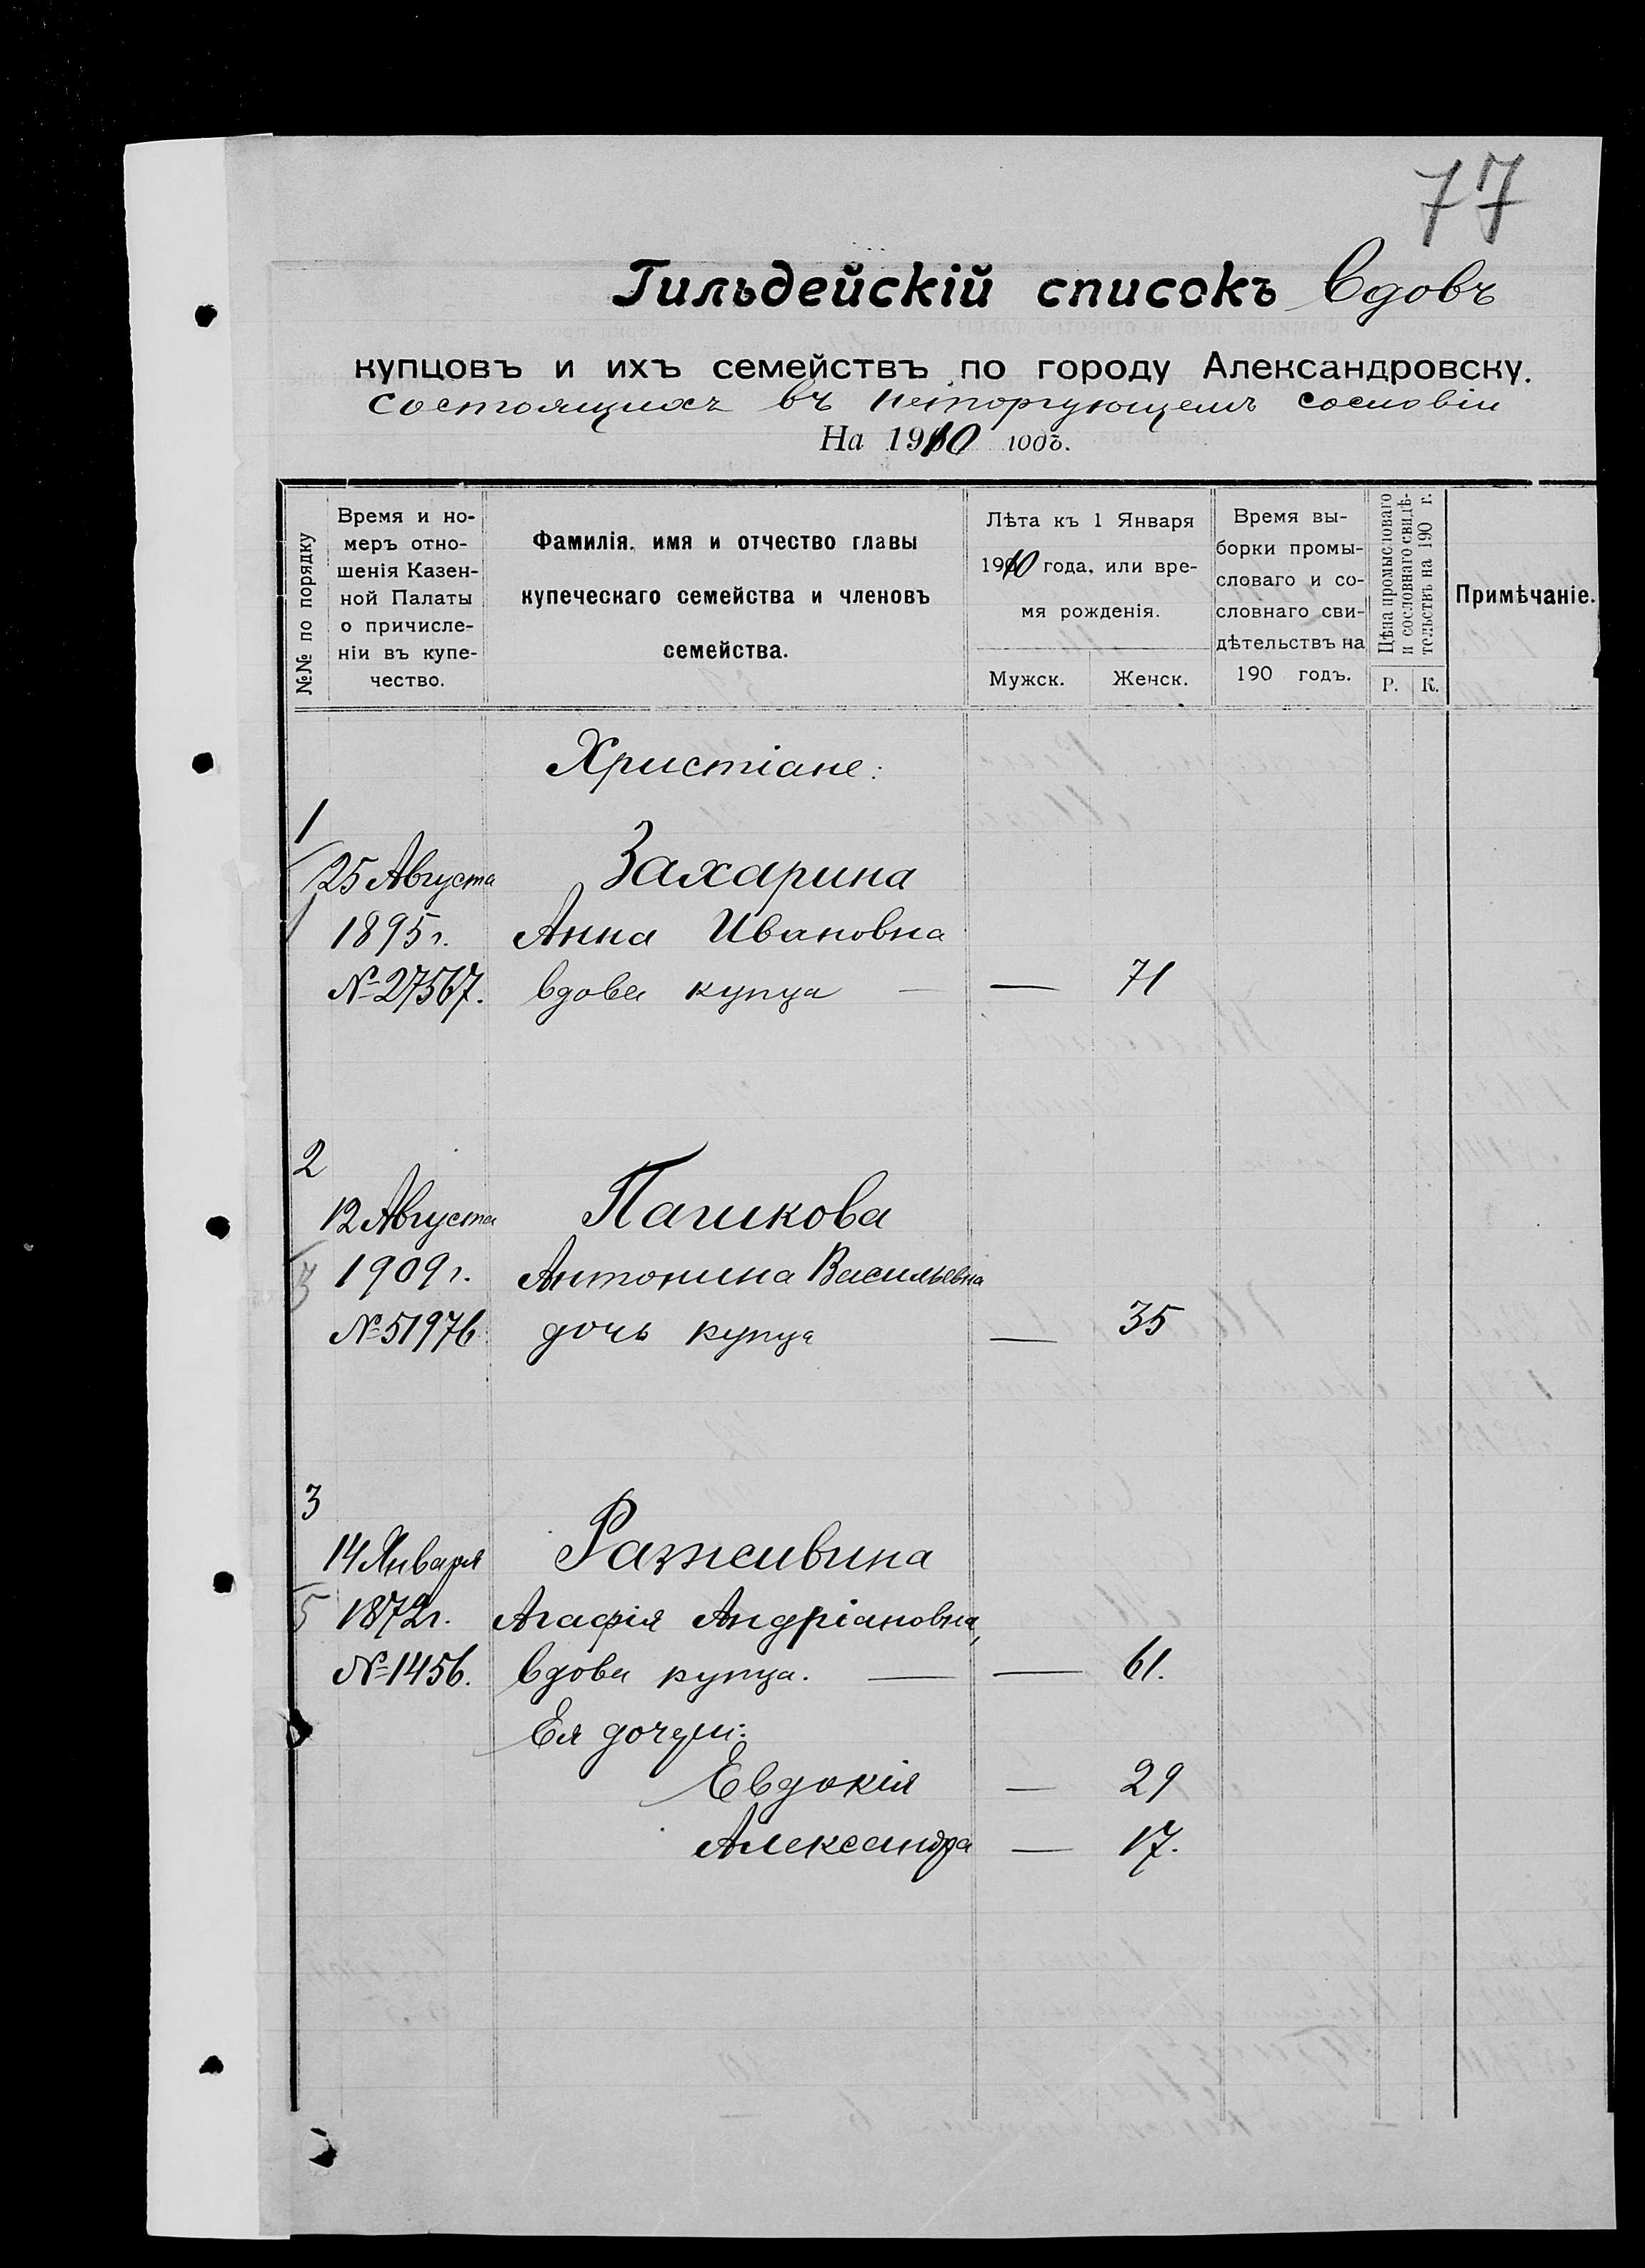 77
Гильдейскій списокъ вдовъ
купцовъ и ихъ семействъ по городу Александровску.
состоящихъ въ неторгующемъ сословіи
На 1910 годъ.
№№ по порядку
Время и но-
меръ отно-
шенія Казен-
ной Палаты
о причисле-
ніи въ купе-
чество.
Фамилія, имя и отчество главы
купеческаго семейства и членовъ
семейства.
Лѣта къ 1 Января
1910 года, или вре-
мя рожденія.
Мужск. Женск.
Время вы-
борки промы-
словаго и со-
словнаго сви-
дѣтельствъ на
190 годъ.
Цѣна промысловаго
и сословнаго свидѣ-
тельствъ на 190 г.
Р. К.
Примѣчаніе.
Христіане:
1
25 Августа Захарина
1895 г. Анна Ивановна
№ 27567. вдова купца — — 71
2
12 Августа Пашкова
1909 г. Антонина Васильевна
№ 51976 дочь купца — 35
3
14 Января Разживина
5 1872 г. Агафія Андріановна,
№ 1456. вдова купца. — — 61.
Ея дочери:
Евдокія — 29
Александра — 17.